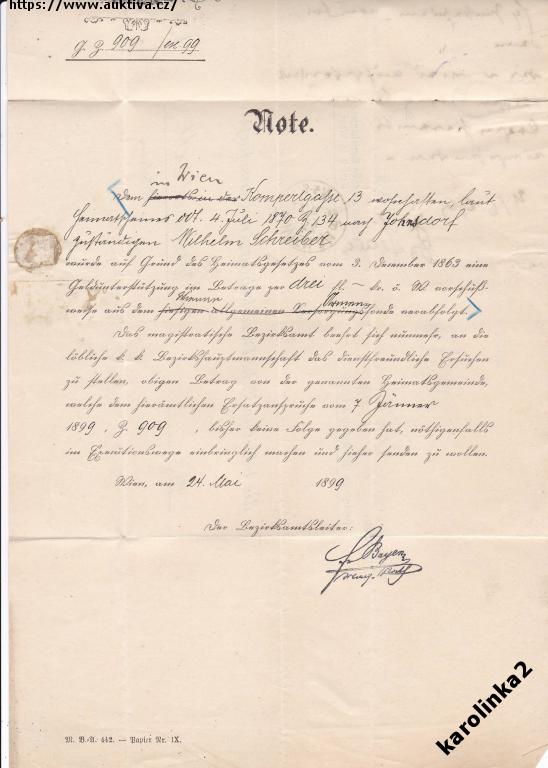 https://www.auktiva.cz/
G. Z. 909 / ex. 99
Note.
in Wien
Dem hierorts in der Kompertgasse 13 wohnhaften, laut
Heimatscheines ddt. 4. Juli 1870 Z. 134 nach Johnsdorf
zuständigen Wilhelm Schreiber
wurde auf Grund des Heimatsgesetzes vom 3. December 1863 eine
Geldunterstützung im Betrage per drei fl. — kr. ö. W. vorschuß-
Wiener Armen
weise aus dem hiesigen allgemeinen Versorgungsfonde verabfolgt.
Das magistratische Bezirksamt beehrt sich nunmehr, an die
löbliche k. k. Bezirkshauptmannschaft das dienstfreundliche Ersuchen
zu stellen, obigen Betrag von der genannten Heimatsgemeinde,
welche dem hierämtlichen Ersatzanspruche vom 7 Jänner
1899, Z. 909, bisher keine Folge gegeben hat, nöthigenfalls
im Executionswege einbringlich machen und hieher senden zu wollen.
Wien, am 24. Mai 1899
Der Bezirksamtsleiter:
M. B.-A. 442. — Papier Nr. IX.
karolinka2